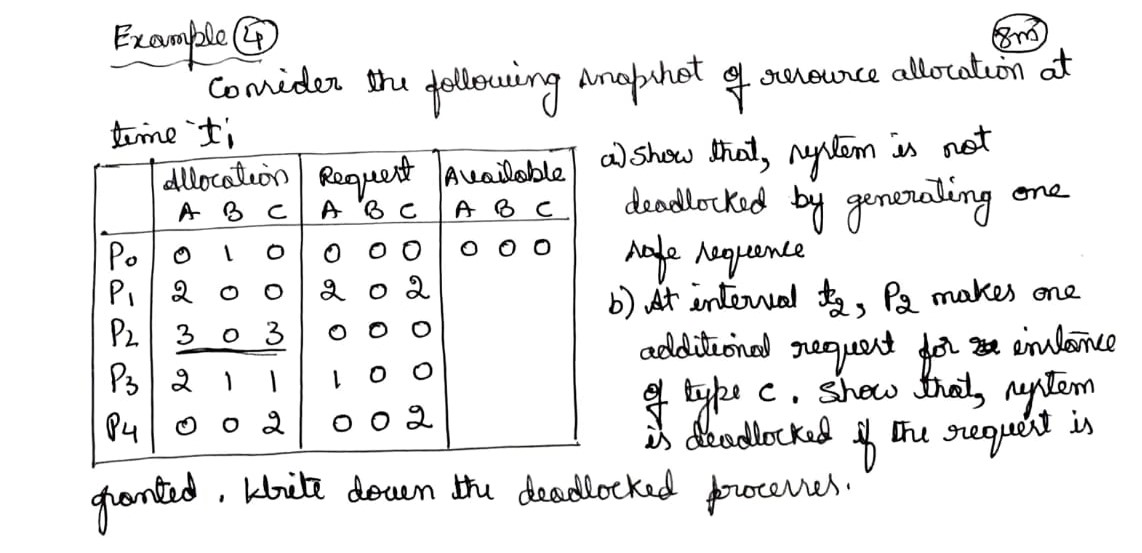 Example 4 8m
Consider the following snapshot of resource allocation at
time 't'
Allocation Request Available
A B C A B C A B C
P0 0 1 0 0 0 0 0 0 0
P1 2 0 0 2 0 2
P2 3 0 3 0 0 0
P3 2 1 1 1 0 0
P4 0 0 2 0 0 2
a) Show that, system is not
deadlocked by generating one
safe sequence
b) At interval t2, P2 makes one
additional request for instance
of type C. Show that, system
is deadlocked if the request is
granted. Write down the deadlocked processes.